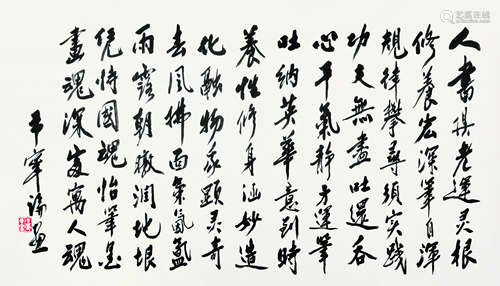 人書俱老運灵根
修養宏深筆自渾
規律攀尋須实践
功夫無盡吐還吞
心平氣静方運筆
吐納英華意到時
養性修身涵妙造
化融物象顯灵奇
風拂面氣氤氲
雨露朝暾潤地垠
凭恃國魂怡筆墨
畫魂深處寓人魂
平
艺狐在线